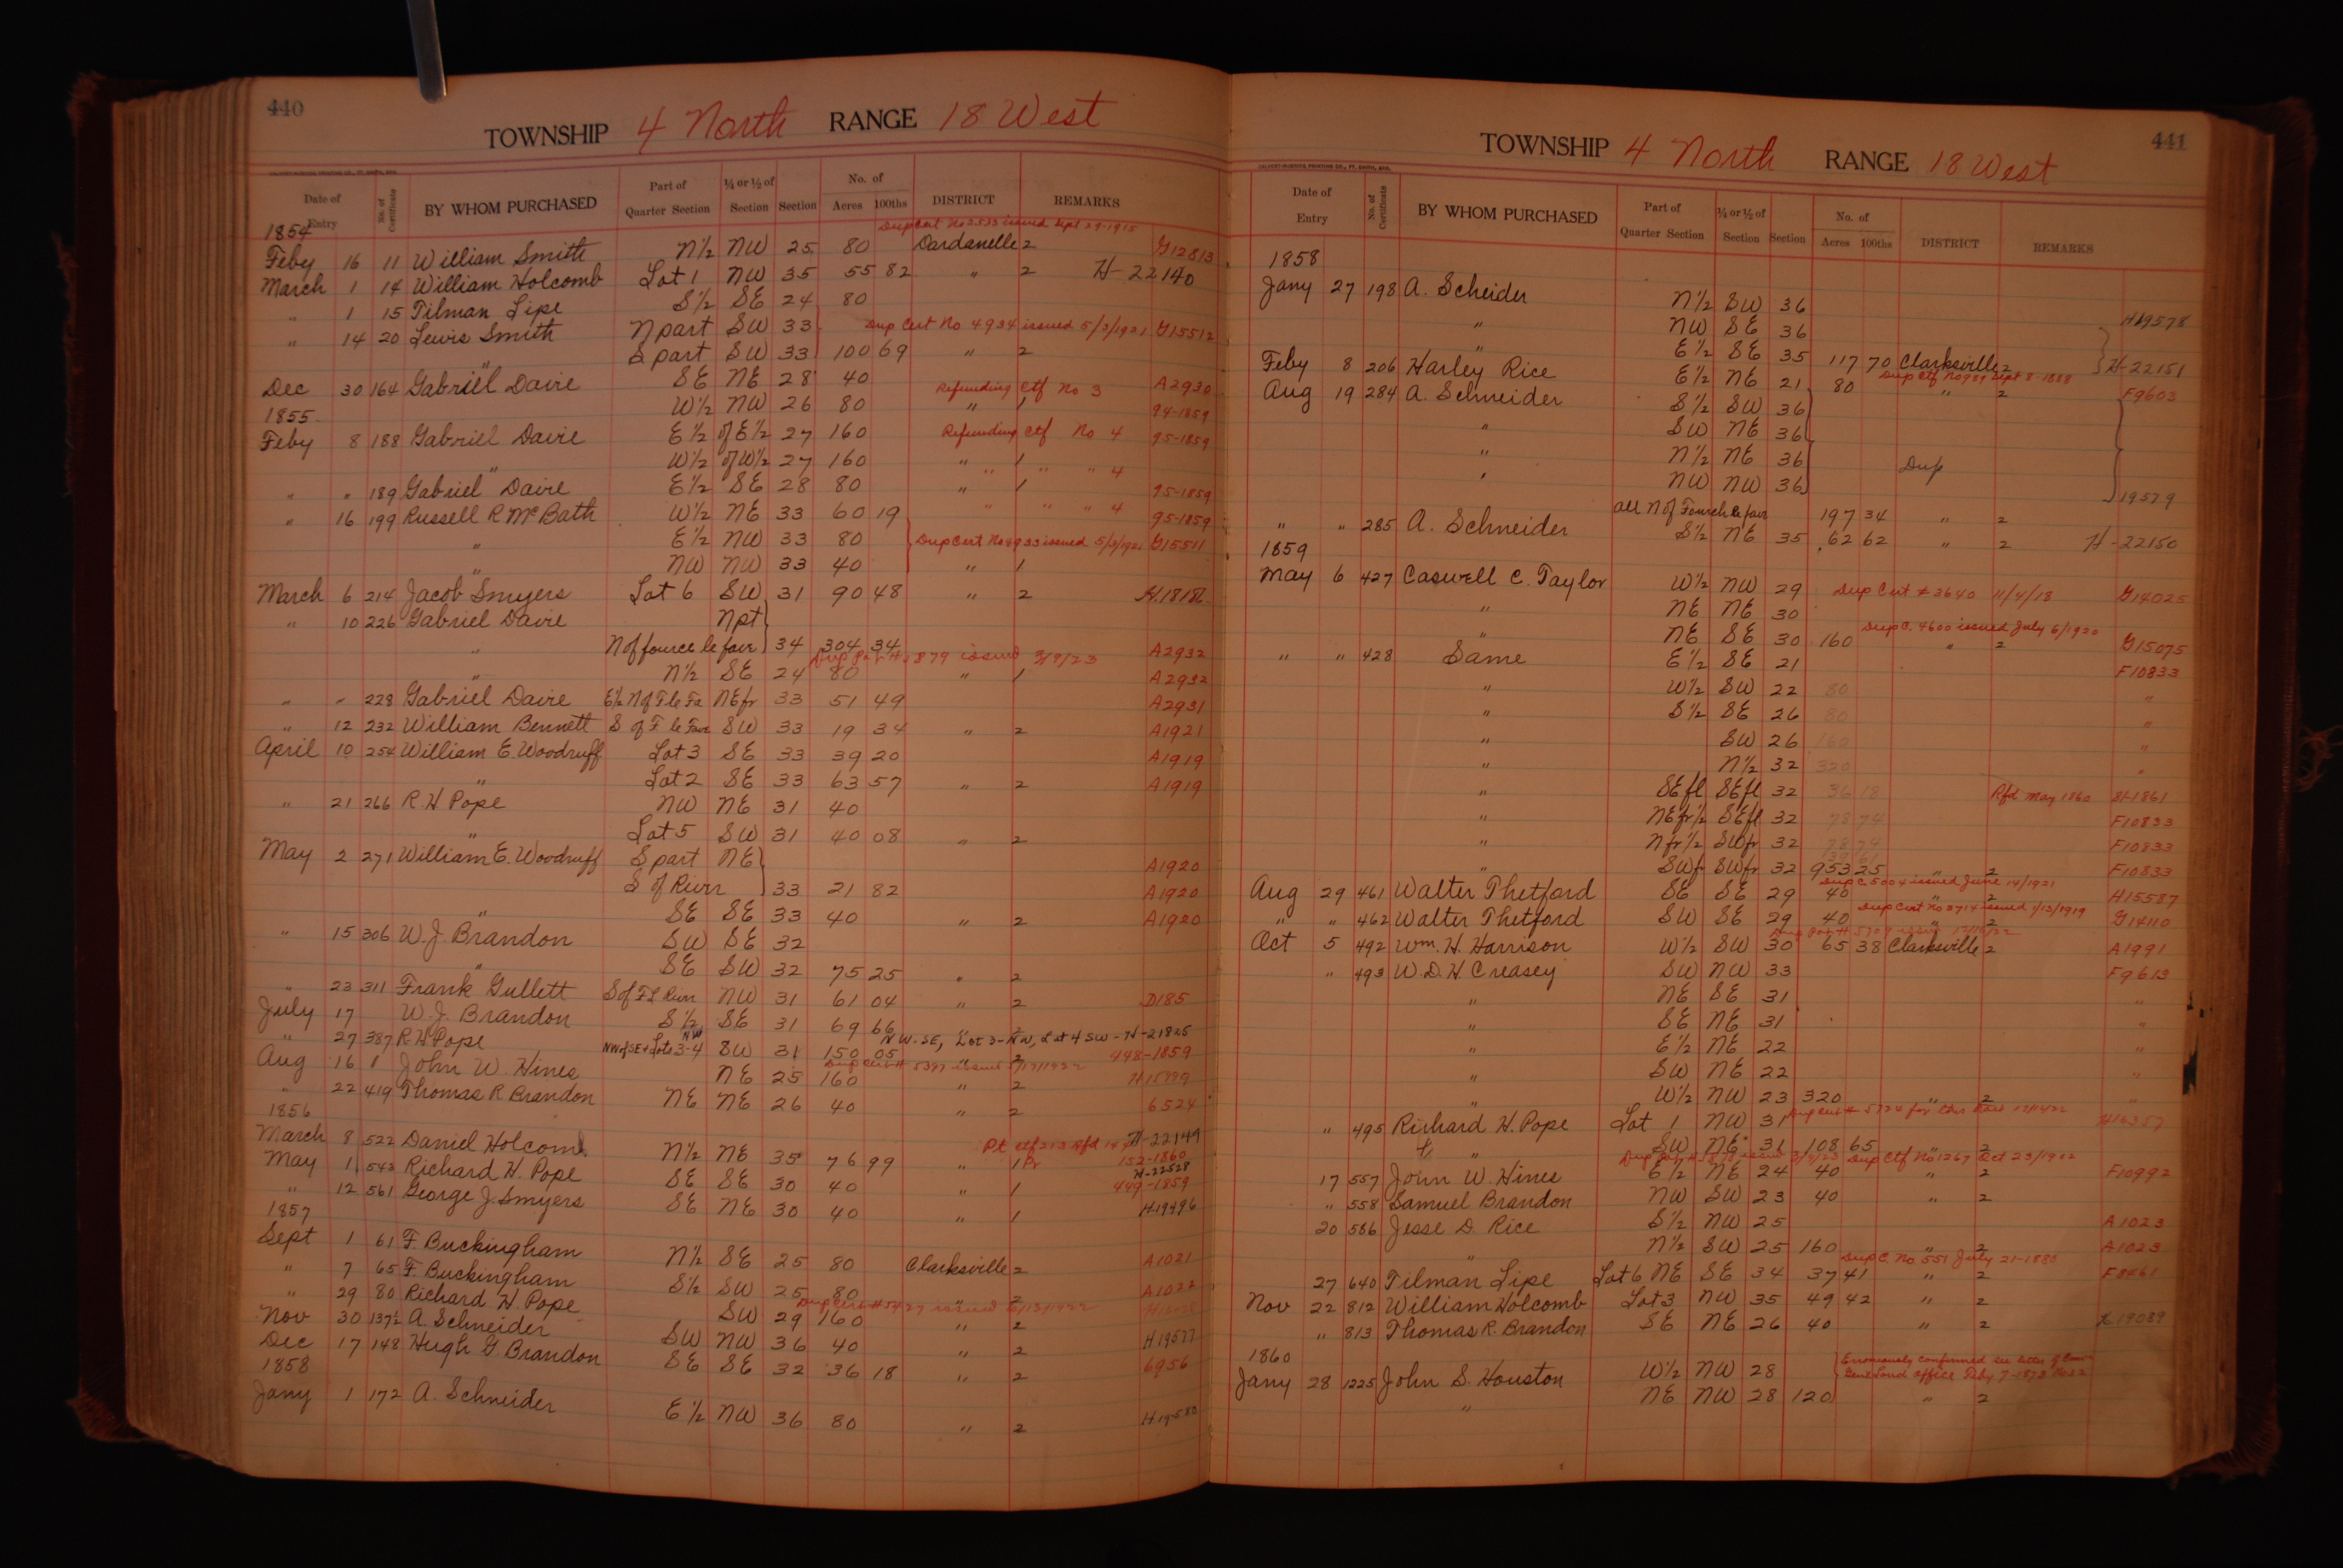 440
TOWNSHIP 4 North RANGE 18 West
Date of Entry No. of Certificate BY WHOM PURCHASED Part of Quarter Section ¼ or ½ of Section Section No. of Acres 100ths DISTRICT REMARKS
1854
Dup Cert No 2533 issued Sept 29-1915
Feby 16 11 William Smith N½ NW 25 80 Dardanelle 2 G12813
March 1 14 William Holcomb Lot 1 NW 35 55 82 " 2 H-22140
" 1 15 Tilman Lipe S½ SE 24 80
" 14 20 Lewis Smith N part SW 33 Dup Cert No 4934 issued 5/3/1921 G15512
" S part SW 33 100 69 " 2
Dec 30 164 Gabriel Davie SE NE 28 40 Refunding Ctf No 3 A2930
W½ NW 26 80 " 1 94-1859
1855
Feby 8 188 Gabriel Davie E½ of E½ 27 160 Refunding Ctf No 4 95-1859
" W½ of W½ 27 160 " 1 " " " 4
" " 189 Gabriel Davie E½ SE 28 80 " 1 95-1859
" 16 199 Russell R McBath W½ NE 33 60 19 " " " 4 95-1859
" E½ NW 33 80 Dup Cert No 4933 issued 5/3/1921 G15511
" NW NW 33 40 " 1
March 6 214 Jacob Smyers Lot 6 SW 31 90 48 " 2
" 10 226 Gabriel Davie Npt
" N of fource le fair 34 304 34 A2932
Dup Pat # 1879 issued 3/8/23
" N½ SE 24 80 " 1 A2932
" " 228 Gabriel Davie E½ N of F le Fa NEfr 33 51 49 A2931
" 12 232 William Bennett S of F le Fair SW 33 19 34 " 2 A1921
April 10 254 William E. Woodruff Lot 3 SE 33 39 20 A1919
" Lot 2 SE 33 63 57 " 2 A1919
" 21 266 R. H Pope NW NE 31 40
" Lot 5 SW 31 40 08 " 2
May 2 271 William E. Woodruff S part NE A1920
S of River 33 21 82 A1920
" SE SE 33 40 " 2 A1920
" 15 306 W. J. Brandon SW SE 32
" SE SW 32 75 25 " 2
" 23 311 Frank Gullett S of F L River NW 31 61 04 " 2 D185
July 17 W. J. Brandon S½ SE 31 69 66
NW-SE, Lot 3-NW, Lot 4 SW - H-21825
" 27 387 R. H Pope NW of SE & Lots 3-4 NW SW 31 150 05 " 2 448-1859
Aug 16 1 John W. Hines NE 25 160 " 2
" 22 419 Thomas R Brandon NE NE 26 40 " 2 6524
1856
March 8 522 Daniel Holcomb N½ NE 35 76 99 " 1 Pr H-22149
152-1860
May 1 543 Richard H. Pope SE SE 30 40 " 1 H-22528
449-1859
" 12 561 George J. Smyers SE NE 30 40 " 1 H-19496
1857
Sept 1 61 F. Buckingham N½ SE 25 80 Clarksville 2 A1021
" 7 65 F. Buckingham S½ SW 25 80 " 2 A1022
" 29 80 Richard H Pope SW 29 160 " 2
Nov 30 137½ A. Schneider SW NW 36 40 " 2 H19577
Dec 17 148 Hugh G. Brandon SE SE 32 36 18 " 2 6956
1858
Jany 1 172 A. Schneider E½ NW 36 80 " 2 H-19580
441
TOWNSHIP 4 North RANGE 18 West
CALVERT-McBRIDE PRINTING CO., FT. SMITH, ARK.
Date of Entry No. of Certificate BY WHOM PURCHASED Part of Quarter Section ¼ or ½ of Section Section No. of Acres 100ths DISTRICT REMARKS
1858
Jany 27 198 A. Scheider N½ SW 36
" NW SE 36 H19578
" E½ SE 35 117 70 Clarksville 2 H-22151
Dup Ctf No 989 Sept 8-1888
Feby 8 206 Harley Rice E½ NE 21 80 " 2 F9603
Aug 19 284 A. Schneider S½ SW 36
" SW NE 36
" N½ NE 36 Dup
" NW NW 36 19579
all N of Fourch le fair 197 34 " 2
" " 285 A. Schneider S½ NE 35 62 62 " 2 H-22150
1859
May 6 427 Caswell C. Taylor W½ NW 29 Dup Cert # 3640 11/4/18 G14025
" NE NE 30
Dup C. 4600 issued July 6/1920
" NE SE 30 160 " 2 G15075
" " 428 Same E½ SE 21 F10833
" W½ SW 22 80 "
" S½ SE 26 80 "
" SW 26 160 "
" N½ 32 320 "
" SEfl SEfl 32 36 18 Rfd May 1860 81-1861
" NEfr½ SEfl 32 78 74 F10833
" Nfr½ SWfr 32 78 74 F10833
" SWfr SWfr 32 953 25 " 2 F10833
Dup C 5004 issued June 14/1921
Aug 29 461 Walter Thetford SE SE 29 40 " 2 H15587
Dup Cert No 3714 issued 1/13/1919
" " 462 Walter Thetford SW SE 29 40 " 2 G14110
Oct 5 492 Wm. H. Harrison W½ SW 30 65 38 Clarksville 2 A1991
" 493 W. D. H Creasey SW NW 33 F9613
" NE SE 31 "
" SE NE 31 "
" E½ NE 22 "
" SW NE 22 "
" W½ NW 23 320 " 2 "
" 495 Richard H. Pope Lot 1 NW 31 H16357
" SW NE 31 108 65 " 2
Dup Ctf No 1267 Oct 23/1912
17 557 John W. Hines E½ NE 24 40 " 2 F10992
" 558 Samuel Brandon NW SW 23 40 " 2
20 586 Jesse D. Rice S½ NW 25 A1023
" N½ SW 25 160 " 2 A1023
Dup C. No 551 July 21-1880
27 640 Tilman Lipe Lot 6 NE SE 34 37 41 " 2 F8461
Nov 22 812 William Holcomb Lot 3 NW 35 49 42 " 2
" 813 Thomas R. Brandon SE NE 26 40 " 2 H19089
1860
Jany 28 1225 John S. Houston W½ NW 28 Erroneously confirmed see letter of Com
Genl Land office Feby 7-1873
" NE NW 28 120 " 2